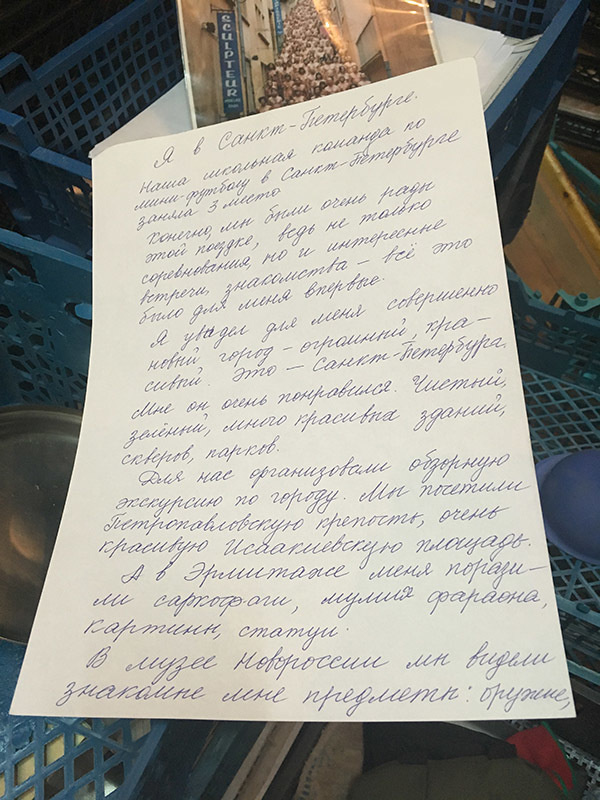 SCULPTEUR
Я в Санкт-Петербурге.
Наша школьная команда по
мини-футболу в Санкт-Петербурге
заняла 3 место
Конечно, мы были очень рады
этой поездке, ведь не только
соревнования, но и интересные
встречи, знакомства – всё это
было для меня впервые.
Я увидел для меня совершенно
новый город – огромный, кра-
сивый. Это – Санкт-Петербург.
Мне он очень понравился. Чистый,
зелёный, много красивых зданий,
скверов, парков.
Для нас организовали обзорную
экскурсию по городу. Мы посетили
Петропавловскую крепость, очень
красивую Исаакиевскую площадь.
А в Эрмитаже меня порази-
ли саркофаги, мумия фараона,
картины, статуи.
В музее Новороссии мы видели
знакомые мне предметы: оружие,